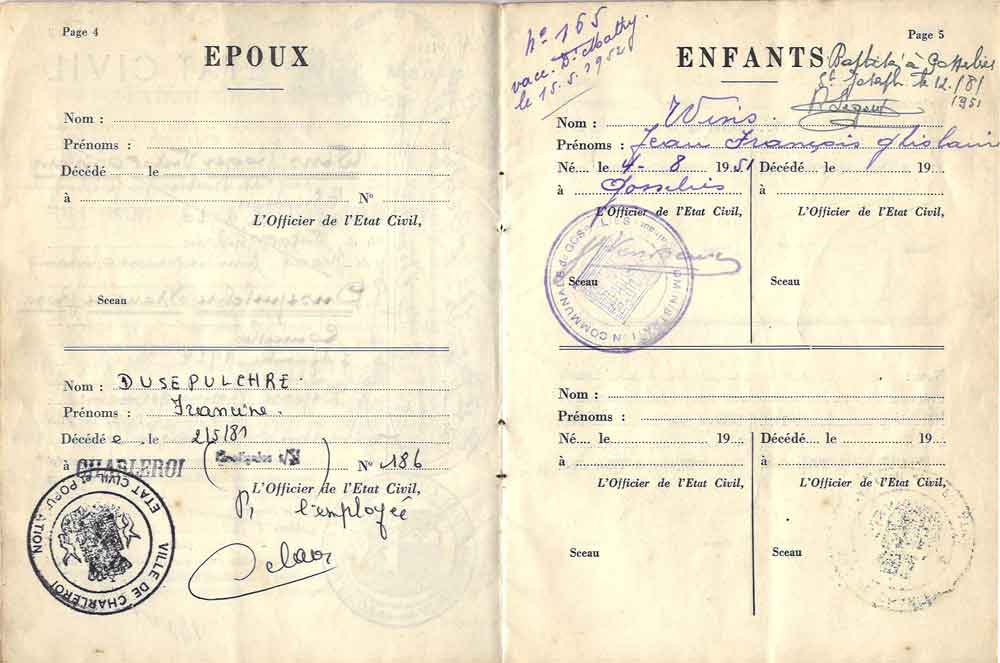 Page 4
EPOUX
Nom :
Prénoms :
Décédé le
à N°
L'Officier de l'Etat Civil,
Sceau
Nom : DUSEPULCHRE.
Prénoms : Francine.
Décédé e. le 2/5/81
à CHARLEROI N° 186
L'Officier de l'Etat Civil,
l'employée
VILLE DE CHARLEROI
ETAT CIVIL et POPULATION
N° 165
vacc. Dr Mathy
le 15.5.1952
Page 5
ENFANTS
à Gosselies
St Joseph le 12./8/
1951
Nom : Wins.
Prénoms : Jean François Ghislain
Né le 4-8 1951 Décédé le 19
à Gosselies à
L'Officier de l'Etat Civil, L'Officier de l'Etat Civil,
ADMINISTRATION COMMUNALE de GOSSELIES
Sceau Sceau
Nom :
Prénoms :
Né le 19 Décédé le 19
à à
L'Officier de l'Etat Civil, L'Officier de l'Etat Civil,
Sceau Sceau